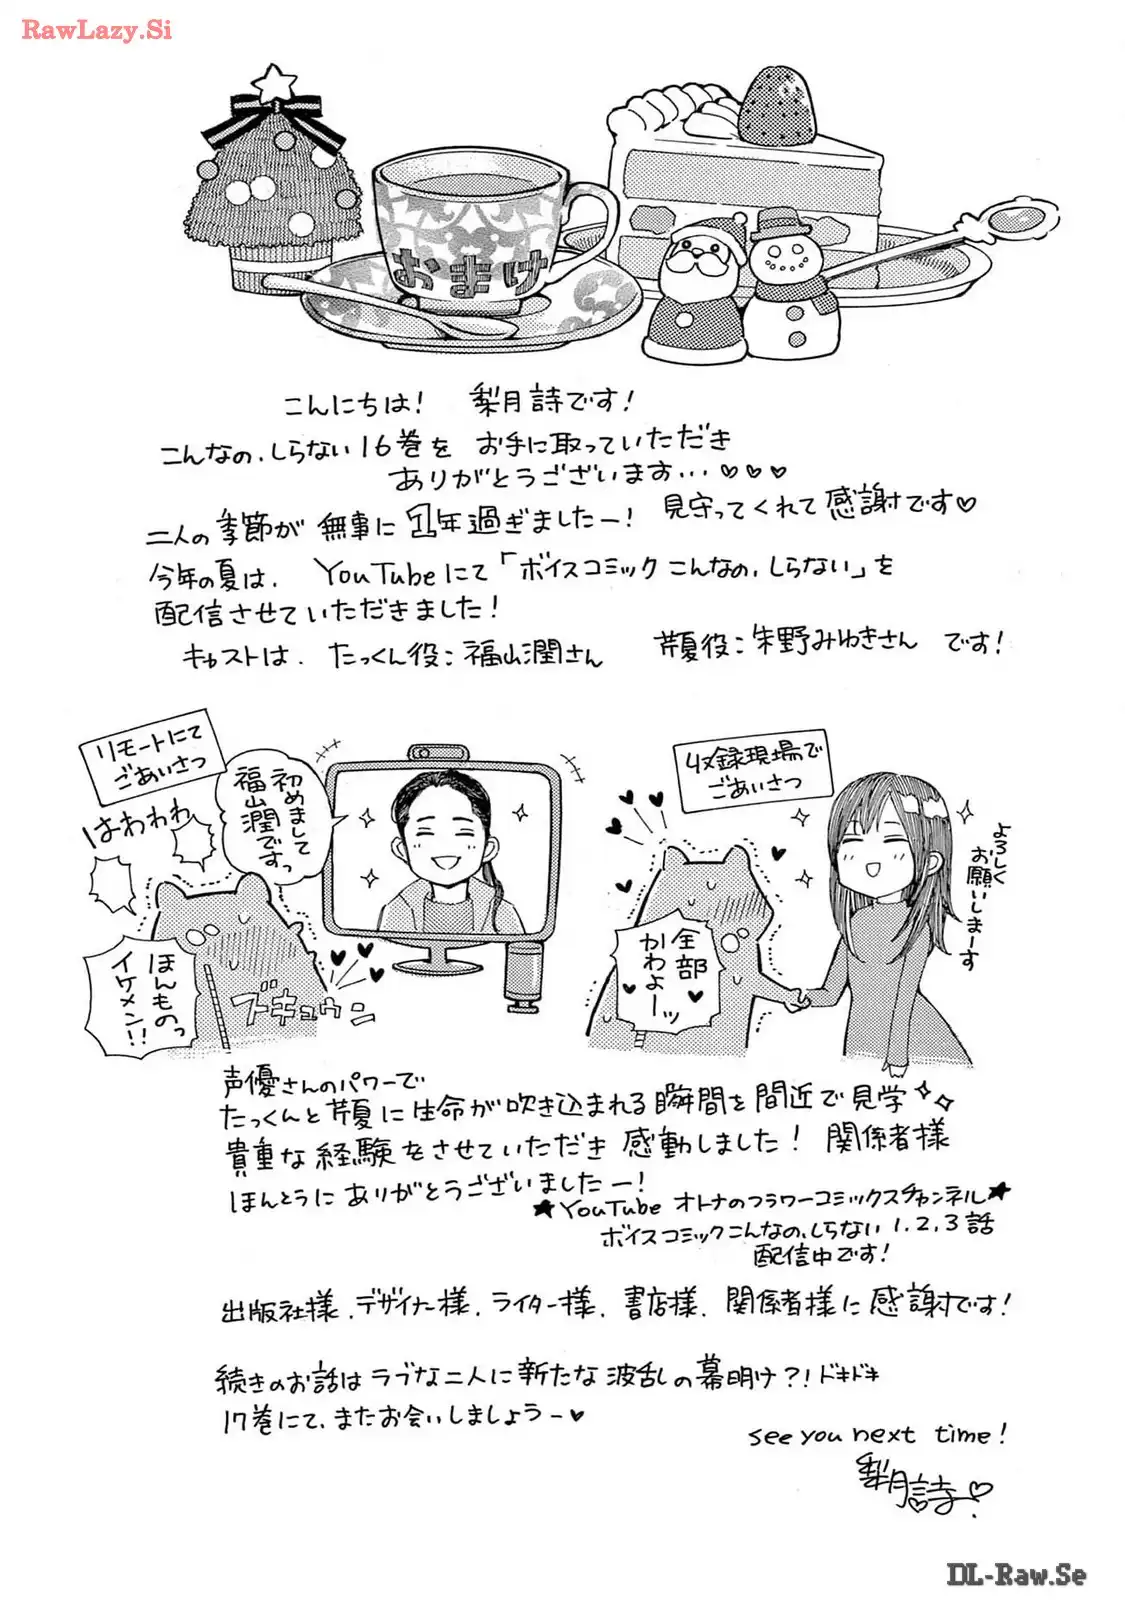 RawLazy.Si
おまけ
こんにちは! 梨月詩です!
こんなの、しらない16巻を お手に取っていただき
ありがとうございます…♡♡♡
二人の季節が 無事に1年過ぎましたー! 見守ってくれて感謝です♡
今年の夏は、 YouTubeにて「ボイスコミック こんなの、しらない」を
配信させていただきました!
キャストは、 たっくん役:福山潤さん 芹夏役:朱野みゆきさん です!
リモートにて
ごあいさつ
はわわわ
初めまして
福山潤ですっ
ほんものっ
イケメン!!
ズキュウン
収録現場で
ごあいさつ
全部
かわよーッ
よろしく
お願いしまーす
声優さんのパワーで
たっくんと芹夏に生命が吹き込まれる瞬間を間近で見学✧✧
貴重な経験をさせていただき 感動しました! 関係者様
ほんとうにありがとうございましたー!
★YouTube オトナのフラワーコミックスチャンネル★
ボイスコミックこんなの、しらない1,2,3話
配信中です!
出版社様、デザイナー様、ライター様、書店様、関係者様に感謝です!
続きのお話はラブな二人に新たな波乱の幕明け?!ドキドキ
17巻にて、またお会いしましょうー♥
see you next time!
梨月詩♡
DL-Raw.Se